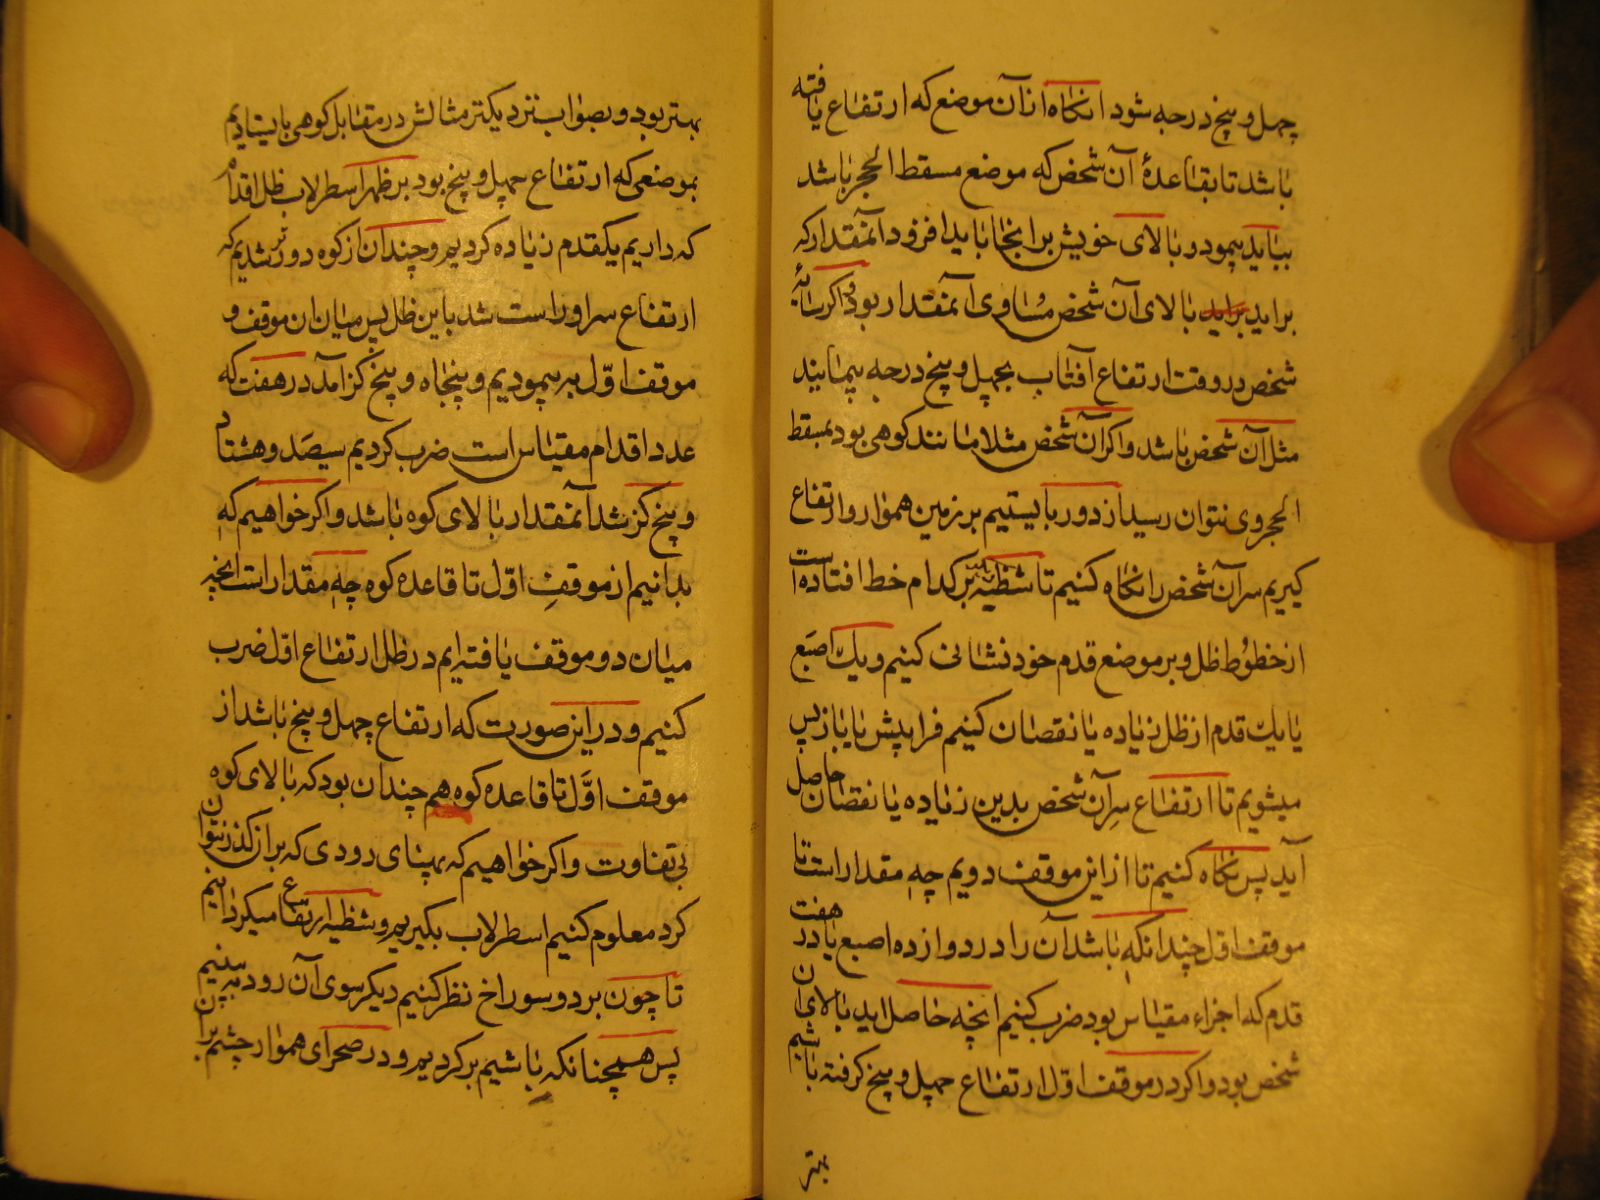 چهل و پنج درجه شود انکاه ازان موضع که ارتفاع یافته
باشد تا بقاعدهٔ آن شخص که موضع مسقط الحجر باشد
بباید پیمود و بالای خویش برانجا باید افزود آنمقدار که
براید بالای آن شخص مساوی آنمقدار بود و اکر سایهٔ
شخص در وقت ارتفاع آفتاب بچهل و پنج درجه بپمایند
مثل آن شخص باشد و اکر آن شخص مثلا مانند کوهی بود بمسقط
الحجر وی نتوان رسید از دور بایستیم بر زمین هموار و ارتفاع
کیریم سر آن شخص را نکاه کنیم تا شظیه بر کدام خط افتاده است
از خطوط ظل و بر موضع قدم خود نشانی کنیم و یک اصبع
یا یک قدم از ظل زیاده یا نقصان کنیم فرا پیش یا باز پس
میشویم تا ارتفاع سر آن شخص بدین زیاده یا نقصان حاصل
آید پس نکاه کنیم تا از این موقف دویم چه مقدار است تا
موقف اول چندانکه باشد آن را در دوازده اصبع یا در هفت
قدم که اجزاء مقیاس بود ضرب کنیم انچه حاصل اید بالای ان
شخص بود و اکر در موقف اول ارتفاع چهل و پنج کرفته باشیم
بهتر
بهتر بود و بصواب نزدیکتر مثالش در مقابل کوهی بایستادیم
بموضعی که ارتفاع چهل و پنج بود بر ظهر اسطرلاب ظل اقدام
که داریم یکقدم زیاده کردیم و چندان از کوه دورتر شدیم که
ارتفاع سر او راست شد باین ظل پس میان ان موقف و
موقف اول به پیمودیم و پنجاه و پنج کز آمد در هفت که
عدد اقدام مقیاس است ضرب کردیم سیصد و هشتاد
و پنج کز شد آنمقدار بالای کوه باشد و اکر خواهیم که
بدانیم از موقف اول تا قاعده کوه چه مقدار است انچه
میان دو موقف یافته ایم در ظل ارتفاع اول ضرب
کنیم و در این صورت که ارتفاع چهل و پنج باشد از
موقف اول تا قاعده کوه هم چندان بود که بالای کوه
بی تفاوت و اکر خواهیم که پهنای رودی که بر ان کذر نتوان
کرد معلوم کنیم اسطرلاب بکیریم و شظیه ارتفاع میکردانیم
تا چون بر دو سوراخ نظر کنیم دیکر سوی آن رود به بینیم
پس همچنانکه باشیم بر کردیم و در صحرای هموار چشم بران